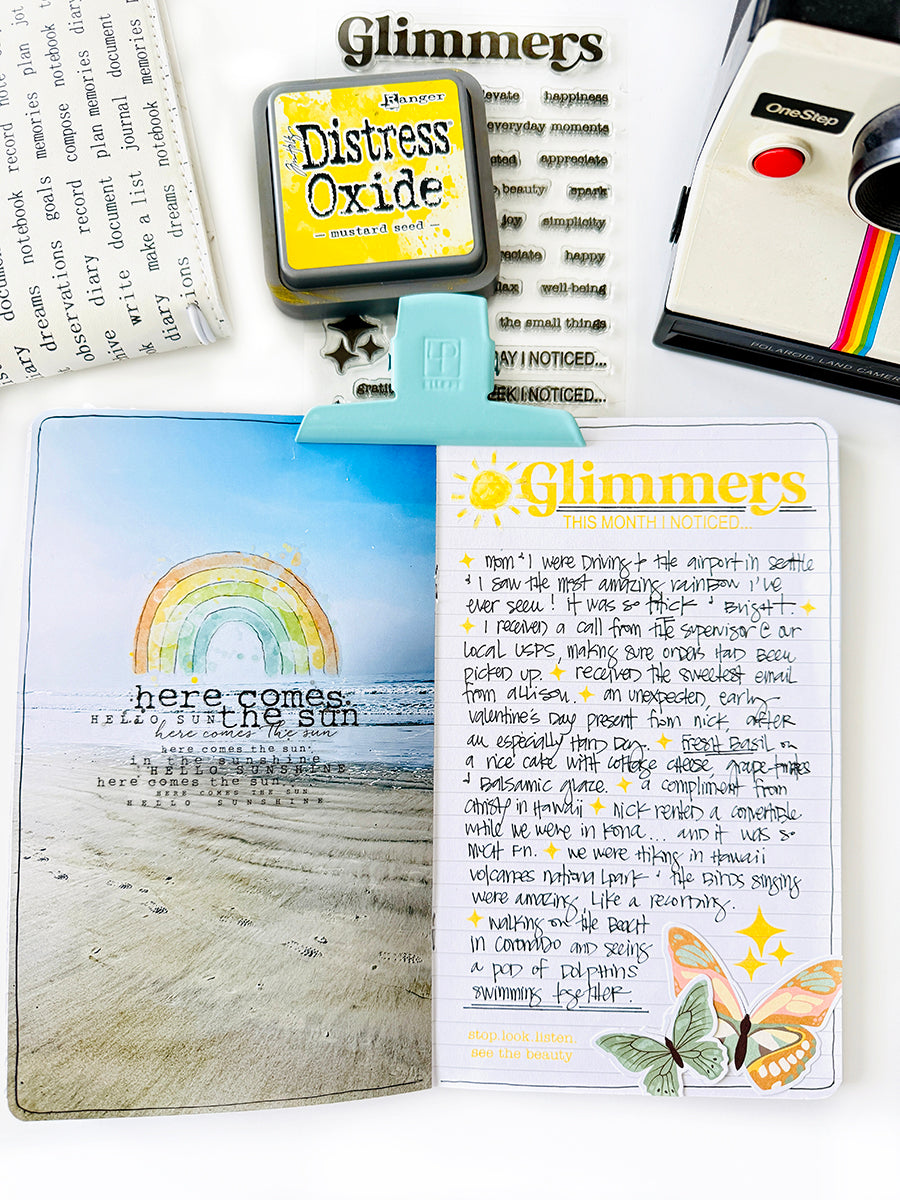 Glimmers
evate happiness
everyday moments
cted appreciate
beauty spark
joy simplicity
eciate happy
lax well-being
the small things
AY I NOTICED...
gratit
EEK I NOTICED...
Ranger
Distress
Oxide
– mustard seed –
OneStep
POLAROID LAND CAMER
record note
notebook record plan jot
memories memories
dreams notebook
goals compose notebook
observations record plan memories diary
diary document journal document
write make a list notebook memories
diary dreams
here comes
HELLO SUN the sun
here comes the sun
here comes the sun.
in the sunshine
HELLO SUNSHINE
here comes the sun.
HERE COMES THE SUN
HELLO SUNSHINE
Glimmers
THIS MONTH I NOTICED...
mom & I were Driving to the airport in seattle
& I saw the most amazing rainbow I've
ever seen! it was so thick & Bright.
I received a call from the supervisor @ our
local USPS, making sure orders Had Been
picked up. received the sweetest email
from allison. an unexpected, early
valentine's Day present from nick, after
an especially Hard Day. Fresh Basil on
a rice cake with cottage cheese, grape tmates
& Balsamic glaze. a compliment from
christy in Hawaii nick rented a convertible
while we were in Kona... and it was so
much Fun. we were Hiking in Hawaii
volcanoes national park & the Birds singing
were amazing. Like a recording.
walking on the Beach
in coronado and seeing
a pod of Dolphins
swimming together.
stop.look.listen.
see the beauty